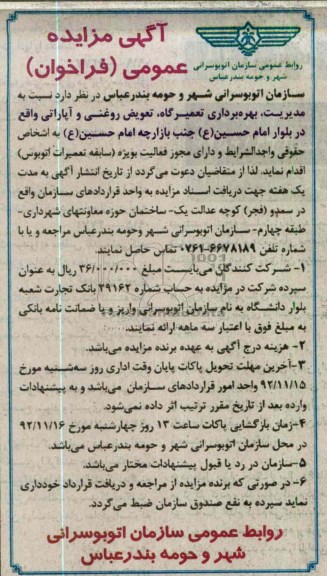 آگهی مزایده
عمومی (فراخوان)
روابط عمومی سازمان اتوبوسرانی
شهر و حومه بندرعباس
سازمان اتوبوسرانی شهر و حومه بندرعباس در نظر دارد نسبت به
مدیریت، بهره‌برداری تعمیرگاه، تعویض روغنی و آپاراتی واقع
در بلوار امام حسین(ع) جنب بازارچه امام حسین(ع) به اشخاص
حقوقی واجدالشرایط و دارای مجوز فعالیت بویژه (سابقه تعمیرات اتوبوس)
اقدام نماید. لذا از متقاضیان دعوت می‌گردد از تاریخ انتشار آگهی به مدت
یک هفته جهت دریافت اسناد مزایده به واحد قراردادهای سازمان واقع
در سه‌راه (فجر) کوچه عدالت یک- ساختمان حوزه معاونتهای شهرداری-
طبقه چهارم- سازمان اتوبوسرانی شهر وحومه بندرعباس مراجعه و یا با
شماره تلفن ۶۶۷۸۱۸۹-۰۷۶۱ تماس حاصل نمایند.
۱- شرکت کنندگان می‌بایست مبلغ ۳۶/۰۰۰/۰۰۰ ریال به عنوان
سپرده شرکت در مزایده به حساب شماره ۲۹۱۶۲ بانک تجارت شعبه
بلوار دانشگاه به نام سازمان اتوبوسرانی واریز و یا ضمانت نامه بانکی
به مبلغ فوق با اعتبار سه ماهه ارائه نمائند.
۲- هزینه درج آگهی به عهده برنده مزایده می‌باشد.
۳-آخرین مهلت تحویل پاکات پایان وقت اداری روز سه‌شنبه مورخ
۹۲/۱۱/۱۵ واحد امور قراردادهای سازمان می‌باشد و به پیشنهادات
وارده بعد از تاریخ مقرر ترتیب اثر داده نمی‌شود.
۴-زمان بازگشایی پاکات ساعت ۱۳ روز چهارشنبه مورخ ۹۲/۱۱/۱۶
در محل سازمان اتوبوسرانی شهر و حومه بندرعباس می‌باشد.
۵-سازمان در رد یا قبول پیشنهادات مختار می‌باشد.
۶- در صورتی که برنده مزایده از مراجعه و دریافت قرارداد خودداری
نماید سپرده به نفع صندوق سازمان ضبط می‌گردد.
روابط عمومی سازمان اتوبوسرانی
شهر و حومه بندرعباس